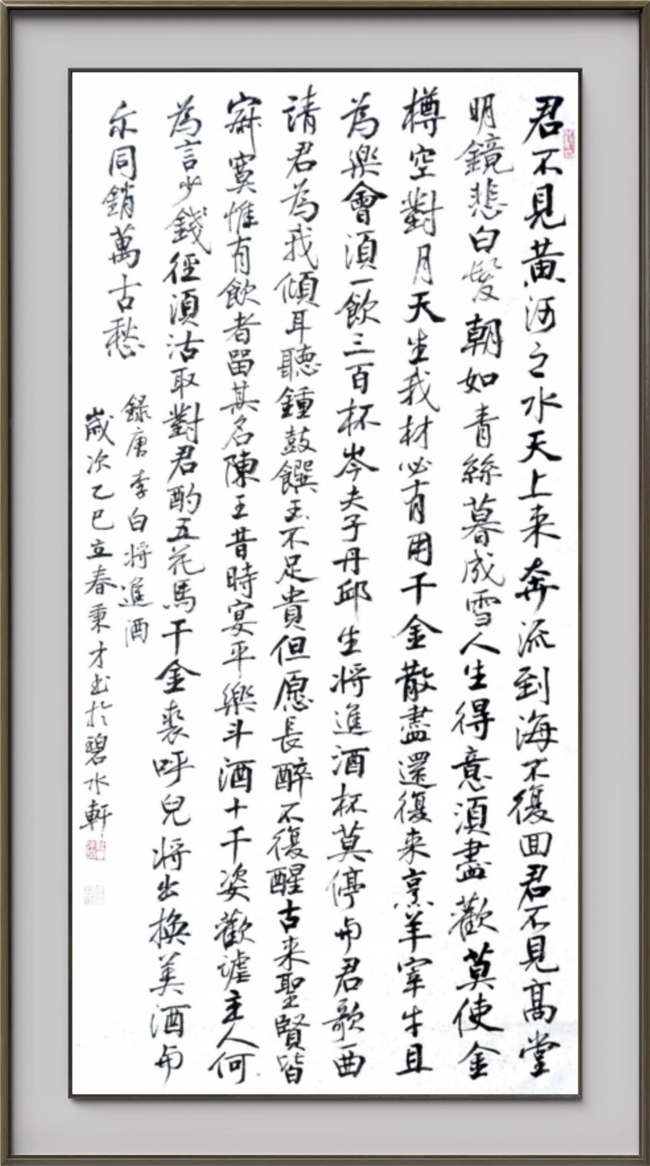 君不見黃河之水天上来奔流到海不復回君不見高堂
明鏡悲白髮朝如青絲暮成雪人生得意須盡歡莫使金
樽空對月天生我材必有用千金散盡還復来烹羊宰牛且
為樂會須一飲三百杯岑夫子丹邱生将進酒杯莫停与君歌一曲
請君為我傾耳聽鍾鼓饌玉不足貴但愿長醉不復醒古来聖賢皆
寂寞惟有飲者留其名陳王昔時宴平樂斗酒十千恣歡謔主人何
為言少錢徑須沽取對君酌五花馬千金裘呼兒将出換美酒与
尔同銷萬古愁
錄唐李白将進酒
歲次乙巳立春秉才书於碧水軒